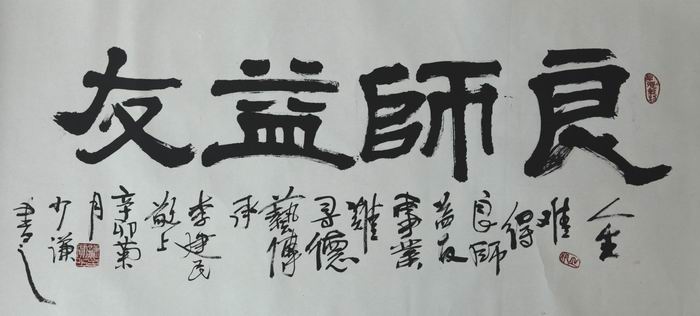 良師益友
人生
難
得
良師
益友
事業
難
尋德
藝傳
承
李建民
敬上
辛卯菊
月
少謙
書之